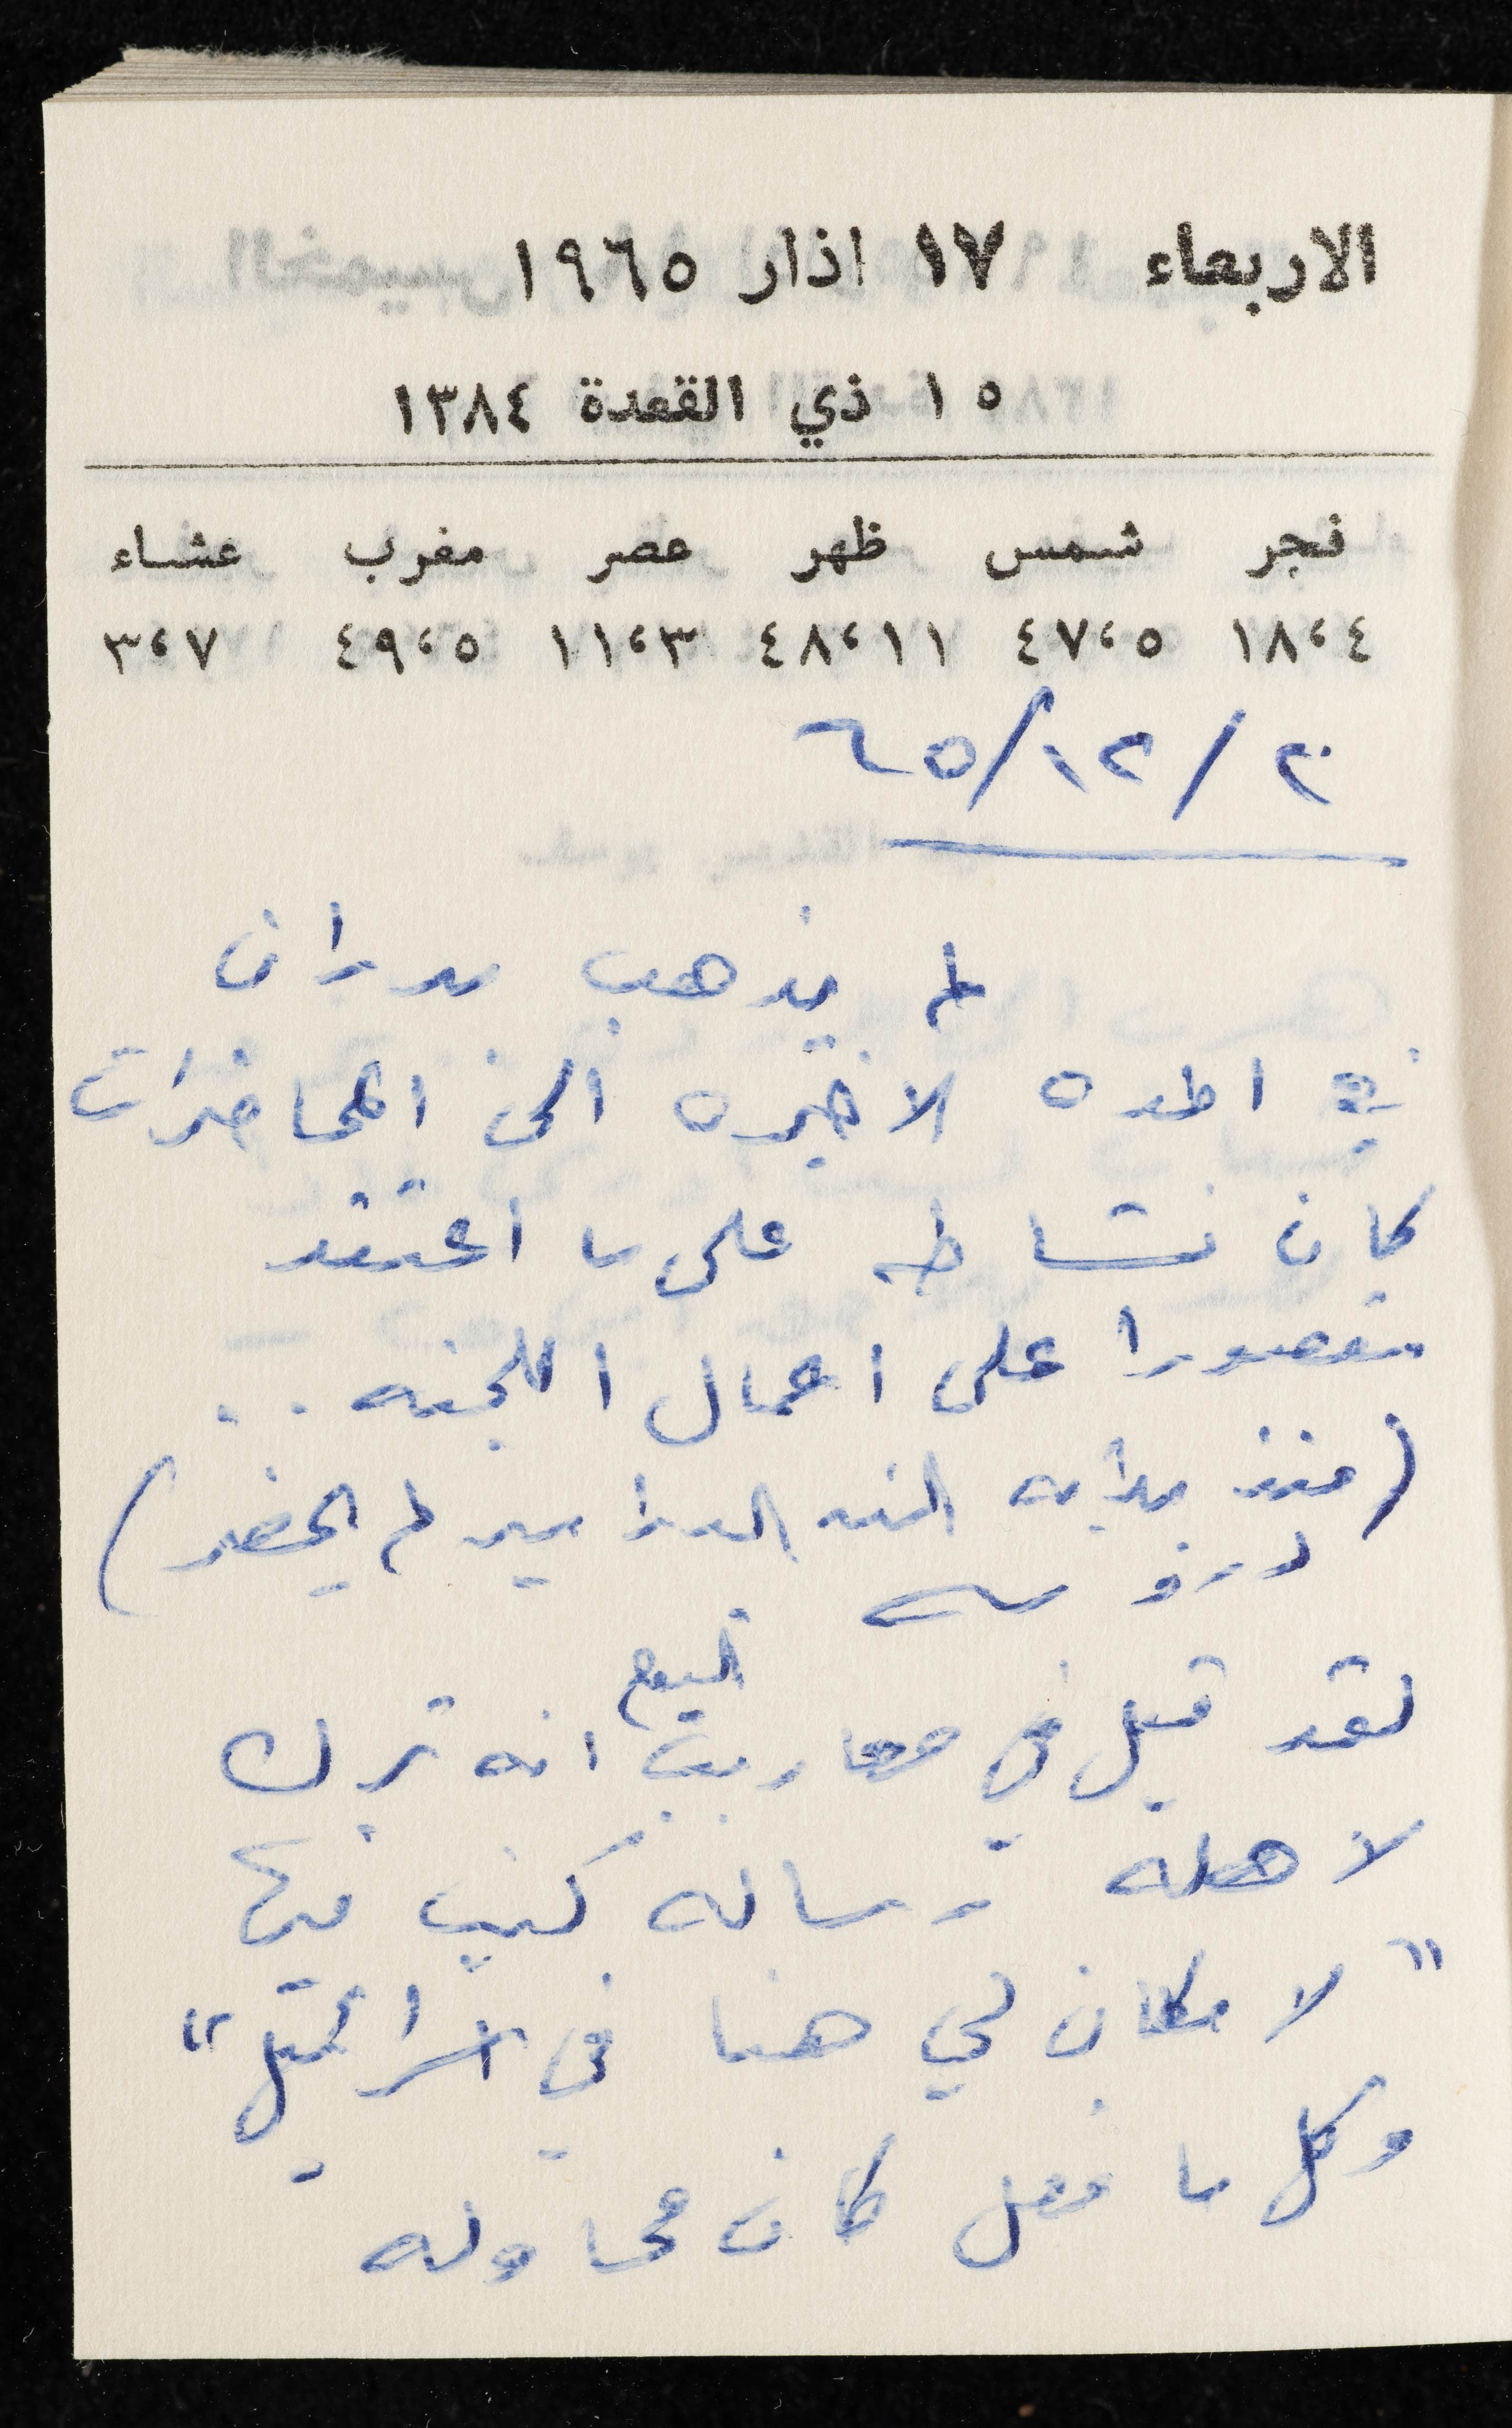 الاربعاء ١٧ اذار ١٩٦٥
١٥ ذي القعدة ١٣٨٤
فجر شمس ظهر عصر مغرب عشاء
١٨،٤ ٤٧،٥ ٤٨،١١ ١١،٣ ٤٩،٥ ٣،٧
٢٠/١٢/٦٥
لم يذهب بدران
في المده الاخيره الى المحاضرات
كان نشاطه على ما اعتقد
مقصورا على اعمال اللجنه ..
(منذ بدايه السنه الدراسيه لم يحضر)
دروسه
اليوم
لقد قيل في معاريب انه ترك
لاهله رساله كتب فيها
"لا مكان لي هنا في اسرائيل"
وكل ما فعل كان محاوله